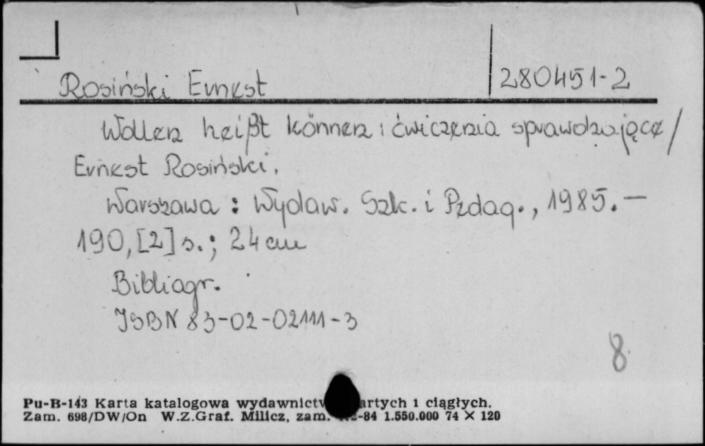 Rosiński Ernest
280451-2
Wollen heißt können : ćwiczenia sprawdzające /
Ernest Rosiński.
Warszawa : Wydaw. Szk. i Pedag., 1985. —
190, [2] s. ; 24 cm
Bibliogr.
ISBN 83-02-02111-3
8
Pu-B-143 Karta katalogowa wydawnictw artych i ciągłych.
Zam. 698/DW/On W.Z.Graf. Milicz, zam. -84 1.550.000 74 × 120